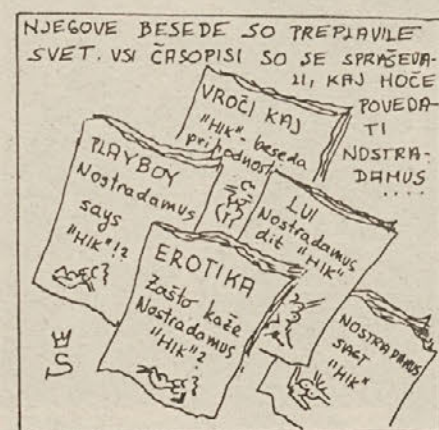 NJEGOVE BESEDE SO PREPLAVILE
SVET. VSI ČASOPISI SO SE SPRAŠEVA-
LI, KAJ HOČE
POVEDA-
TI
NOSTRA-
DAMUS
....
VROČI KAJ
"HIK"- beseda
prihodnosti
PLAYBOY
Nostradamus
says
"HIK"!?
LUI
Nostradamus
dit "HIK"
EROTIKA
Zašto kaže
Nostradamus
"HIK"?
NOSTRADAMUS
SAGT
"HIK"
S